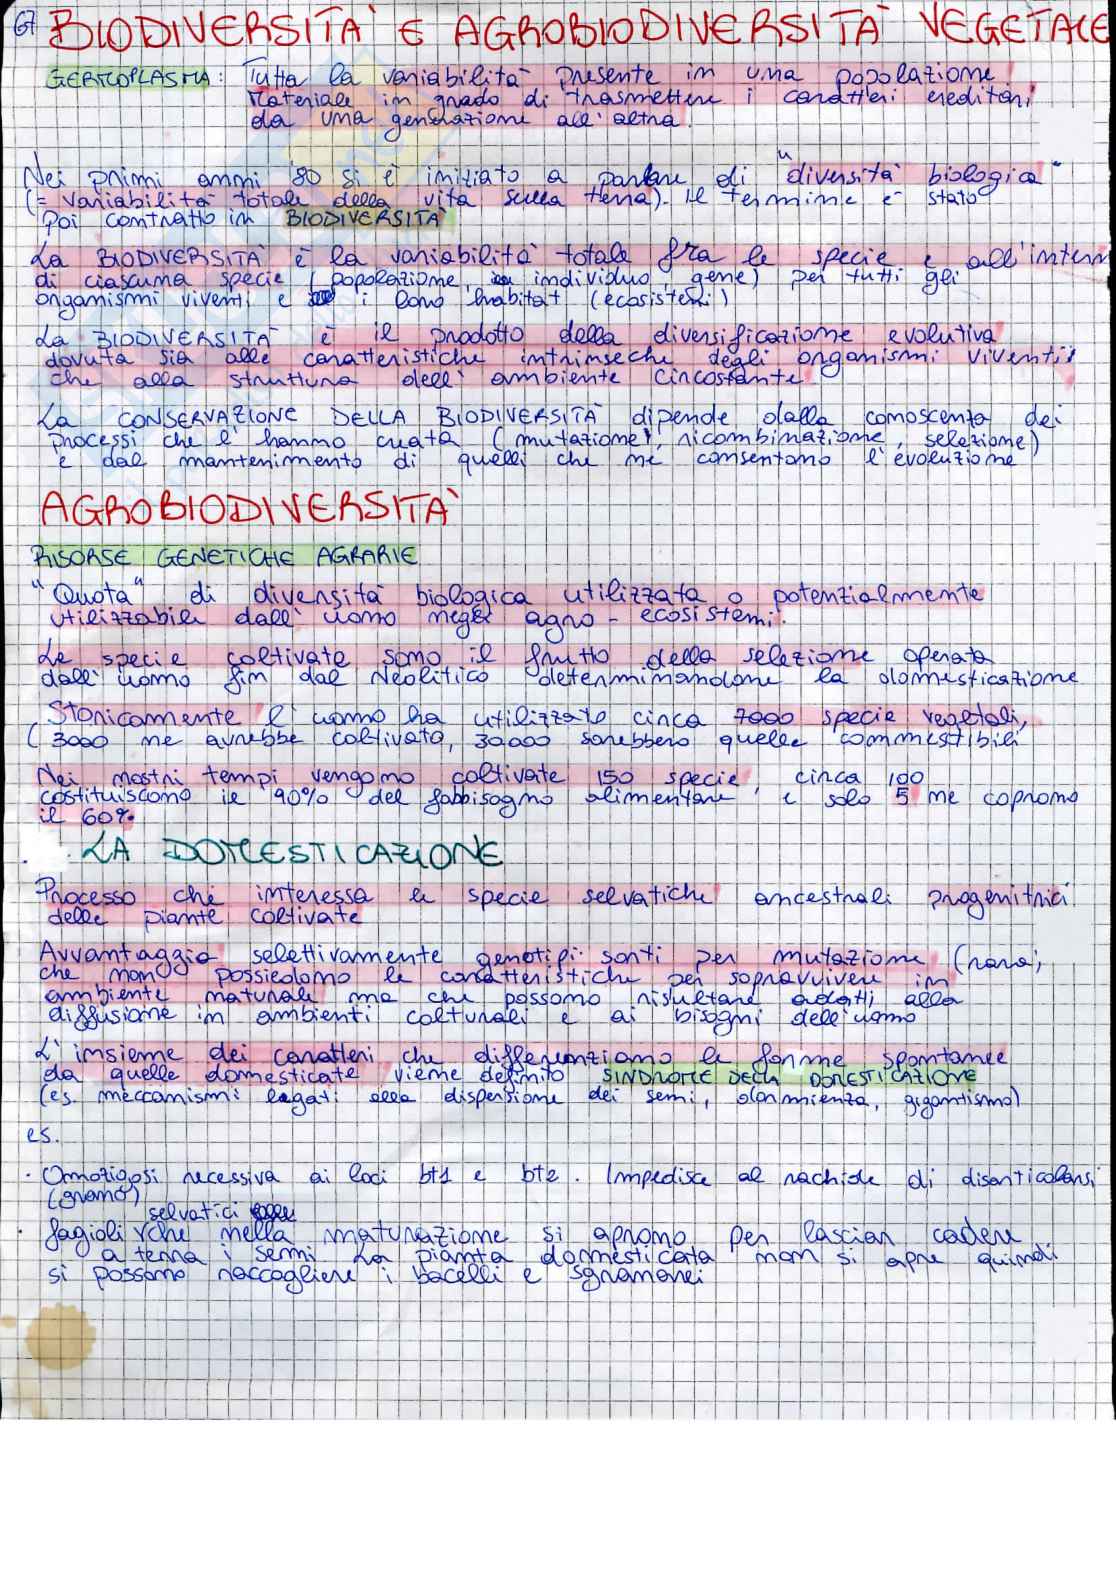 67 BIODIVERSITÀ E AGROBIODIVERSITÀ VEGETALE
GERMOPLASMA: Tutta la variabilità presente in una popolazione.
Materiale in grado di trasmettere i caratteri ereditari
da una generazione all'altra.
Nei primi anni '80 si è iniziato a parlare di "diversità biologica"
(= variabilità totale della vita sulla terra). Il termine è stato
poi contratto in BIODIVERSITÀ
La BIODIVERSITÀ è la variabilità totale fra le specie e all'intern
di ciascuna specie (popolazione, individuo, gene) per tutti gli
organismi viventi e i loro habitat (ecosistemi)
La BIODIVERSITÀ è il prodotto della diversificazione evolutiva
dovuta sia alle caratteristiche intrinseche degli organismi viventi
che alla struttura dell'ambiente circostante
La CONSERVAZIONE DELLA BIODIVERSITÀ dipende dalla conoscenza dei
processi che l'hanno creata (mutazione, ricombinazione, selezione)
e dal mantenimento di quelli che ne consentono l'evoluzione
AGROBIODIVERSITÀ
RISORSE GENETICHE AGRARIE
"Quota" di diversità biologica utilizzata o potenzialmente
utilizzabile dall'uomo negli agro-ecosistemi.
Le specie coltivate sono il frutto della selezione operata
dall'uomo fin dal Neolitico determinandone la domesticazione
Storicamente l'uomo ha utilizzato circa 7000 specie vegetali,
(3000 ne avrebbe coltivato, 30.000 sarebbero quelle commestibili
Nei nostri tempi vengono coltivate 150 specie, circa 100
costituiscono il 90% del fabbisogno alimentare e solo 5 ne coprono
il 60%
LA DOMESTICAZIONE
Processo che interessa le specie selvatiche ancestrali progenitrici
delle piante coltivate
Avvantaggia selettivamente genotipi sorti per mutazione (rara,
che non possiedono le caratteristiche per sopravvivere in
ambiente naturale ma che possono risultare adatti alla
diffusione in ambienti colturali e ai bisogni dell'uomo
L'insieme dei caratteri che differenziano le forme spontanee
da quelle domesticate viene definito SINDROME DELLA DOMESTICAZIONE
(es. meccanismi legati alla dispersione dei semi, dormienza, gigantismo)
es.
· Omozigosi recessiva ai loci bt1 e bt2. Impedisce al rachide di disarticolarsi
(grano)
selvatici
· fagioli che nella maturazione si aprono per lasciar cadere
a terra i semi. La pianta domesticata non si apre quindi
si possono raccogliere i bacelli e sgranarei